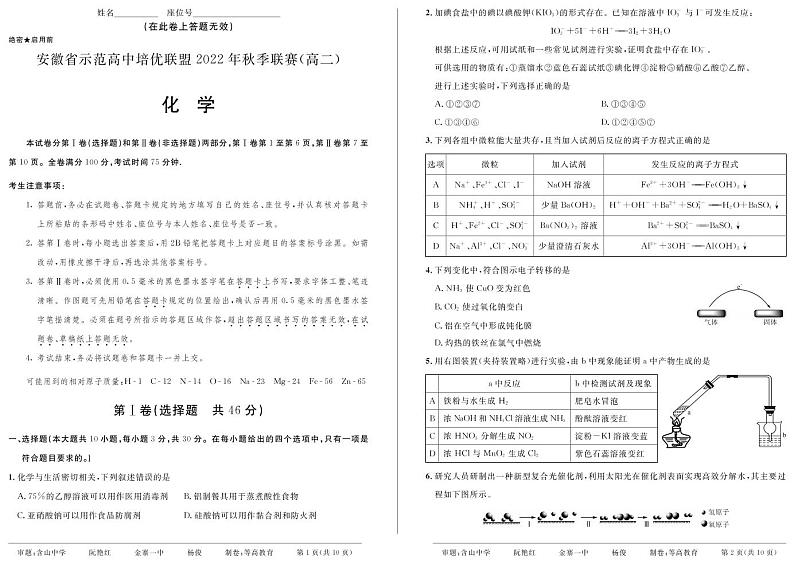 姓名 座位号
(在此卷上答题无效)
绝密★启用前
安徽省示范高中培优联盟 2022 年秋季联赛(高二)
化 学
本试卷分第Ⅰ卷(选择题)和第Ⅱ卷(非选择题)两部分,第Ⅰ卷第 1 至第 6 页,第Ⅱ卷第 7 至
第 10 页。全卷满分 100 分,考试时间 75 分钟.
考生注意事项:
1. 答题前,务必在试题卷、答题卡规定的地方填写自己的姓名、座位号,并认真核对答题卡
上所粘贴的条形码中姓名、座位号与本人姓名、座位号是否一致。
2. 答第Ⅰ卷时,每小题选出答案后,用 2B 铅笔把答题卡上对应题目的答案标号涂黑。如需
改动,用橡皮擦干净后,再选涂其他答案标号。
3. 答第Ⅱ卷时,必须使用 0.5 毫米的黑色墨水签字笔在答题卡上书写,要求字体工整、笔迹
清晰。作图题可先用铅笔在答题卡规定的位置绘出,确认后再用 0.5 毫米的黑色墨水签
字笔描清楚。必须在题号所指示的答题区域作答,超出答题区域书写的答案无效,在试
题卷、草稿纸上答题无效。
4. 考试结束,务必将试题卷和答题卡一并上交。
可能用到的相对原子质量:H-1 C-12 N-14 O-16 Na-23 Mg-24 Fe-56 Zn-65
第Ⅰ卷(选择题 共 46 分)
一、选择题(本大题共 10 小题,每小题 3 分,共 30 分。在每小题给出的四个选项中,只有一项是
符合题目要求的。)
1. 化学与生活密切相关,下列叙述错误的是
A. 75%的乙醇溶液可以用作医用消毒剂 B. 铝制餐具用于蒸煮酸性食物
C. 亚硝酸钠可以用作食品防腐剂 D. 硅酸钠可以用作黏合剂和防火剂
审题:含山中学 阮艳红 金寨一中 杨俊 制卷:等高教育 第 1 页(共 10 页)
2. 加碘食盐中的碘以碘酸钾(KIO₃)的形式存在。已知在溶液中 IO₃⁻ 与 I⁻ 可发生反应:
IO₃⁻+5I⁻+6H⁺═3I₂+3H₂O
根据上述反应,可用试纸和一些常见试剂进行实验,证明食盐中存在 IO₃⁻。
可供选用的物质有:①蒸馏水②蓝色石蕊试纸③碘化钾④淀粉⑤硝酸⑥乙酸⑦乙醇。
进行上述实验时,下列选择正确的是
A. ①②③⑦ B. ①③④⑤
C. ①③④⑥ D. ①②④⑤⑦
3. 下列各组中微粒能大量共存,且当加入试剂后反应的离子方程式正确的是
选项 微粒 加入试剂 发生反应的离子方程式
A Na⁺、Fe³⁺、Cl⁻、I⁻ NaOH 溶液 Fe³⁺+3OH⁻═Fe(OH)₃↓
B NH₄⁺、H⁺、SO₄²⁻ 少量 Ba(OH)₂ H⁺+OH⁻+Ba²⁺+SO₄²⁻═H₂O+BaSO₄↓
C H⁺、Fe²⁺、Cl⁻、SO₄²⁻ Ba(NO₃)₂ 溶液 Ba²⁺+SO₄²⁻═BaSO₄↓
D Na⁺、Al³⁺、Cl⁻、NO₃⁻ 少量澄清石灰水 Al³⁺+3OH⁻═Al(OH)₃↓
4. 下列变化中,符合图示电子转移的是
A. NH₃ 使 CuO 变为红色
B. CO₂ 使过氧化钠变白
C. 铝在空气中形成钝化膜
D. 灼热的铁丝在氯气中燃烧
e⁻
气体 固体
5. 用右图装置(夹持装置略)进行实验,由 b 中现象能证明 a 中产物生成的是
a 中反应 b 中检测试剂及现象
A 铁粉与水生成 H₂ 肥皂水冒泡
B 浓 NaOH 和 NH₄Cl 溶液生成 NH₃ 酚酞溶液变红
C 浓 HNO₃ 分解生成 NO₂ 淀粉-KI 溶液变蓝
D 浓 HCl 与 MnO₂ 生成 Cl₂ 紫色石蕊溶液变红
a
b
6. 研究人员研制出一种新型复合光催化剂,利用太阳光在催化剂表面实现高效分解水,其主要过
程如下图所示。
Ⅰ Ⅱ Ⅲ 氢原子
氧原子
审题:含山中学 阮艳红 金寨一中 杨俊 制卷:等高教育 第 2 页(共 10 页)